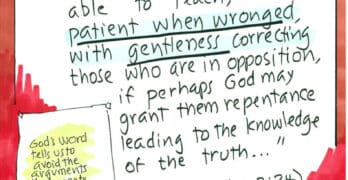 able to teach,
patient when wronged,
with gentleness correcting
those who are in opposition,
if perhaps God may
grant them repentance
leading to the knowledge
of the truth..."
God's word
tells us to
avoid the
arguments